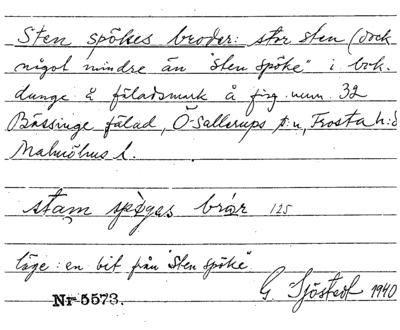 Sten spökes broder: stor sten (dock
något mindre än "Sten spöke" i bok-
dunge å fäladsmark å fig. num. 32
Bässinge fälad, Ö Sallerups s:n, Frosta h:d
Malmöhus l.
spøgas brår 125
läge: en bit från "Sten spöke"
Nr 5573.
G. Sjöstedt 1940